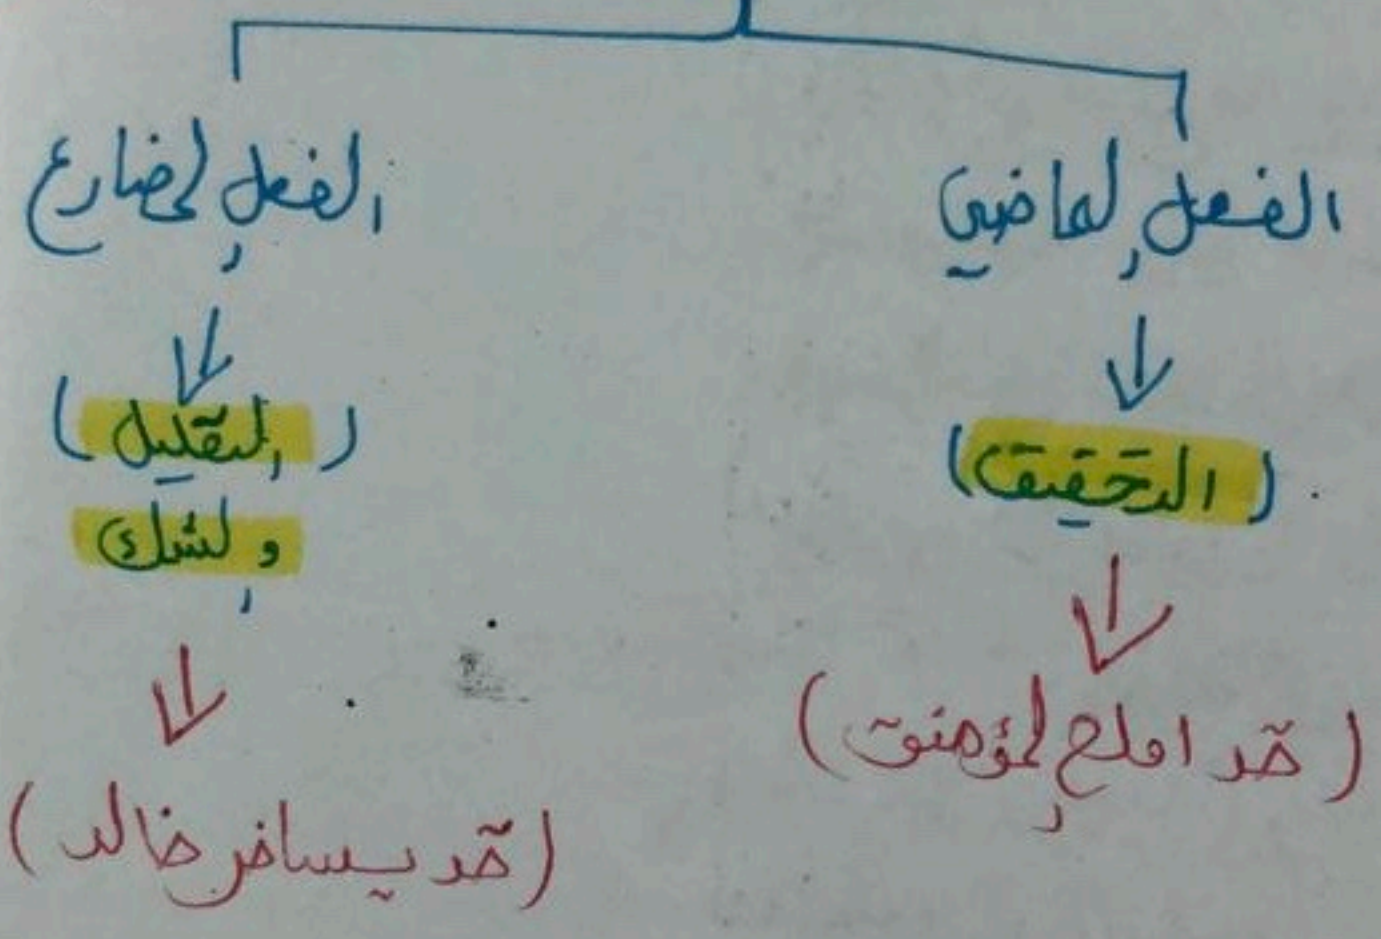 الفعل الماضي
(التحقيق)
(قد افلح المؤمنون)
الفعل المضارع
(التقليل)
والشك
(قد يسافر خالد)